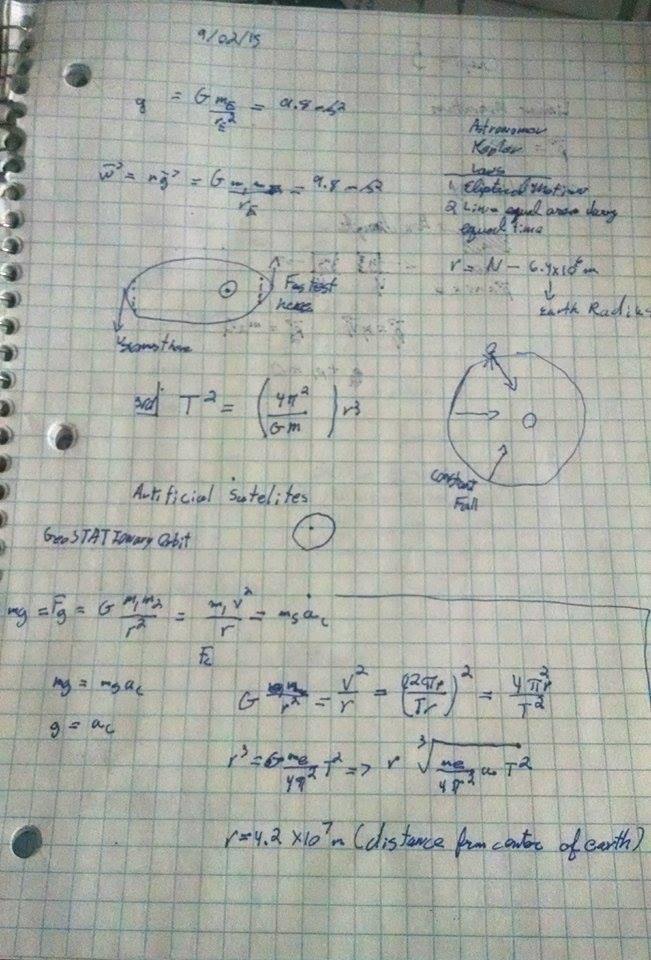 9/02/15
g = G m_E / r_E² = 9.8 m/s²
Astronomer
Kepler
Laws
w⃗ = mg⃗ = G = 9.8 m/s²
1. Eliptical Motion
2 Line equal area
equal time
r = N - 6.4x10⁶ m
Earth Radius
Fastest
here
3rd T² = (4π² / Gm) r³
Constant
Fall
Artificial Satelites
GeoSTATIonary Orbit
mg = Fg = G m₁m₂ / r² = m₁v² / r = m₅a_c
F_c
mg = m₅a_c
G / r² = v² / r = (2πr / Tr)² = 4π²r / T²
g = a_c
r³ = G me / 4π² T² => r ∛(me / 4π² G T²)
r = 4.2 x10⁷ m (distance from center of earth)